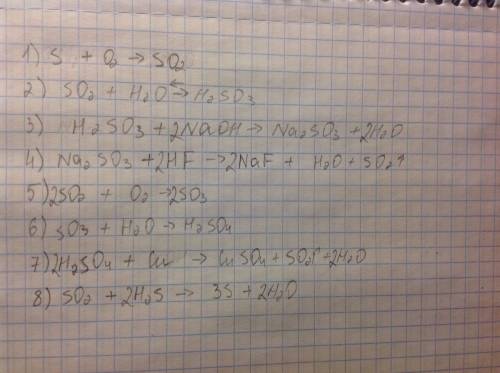 1) S + O₂ → SO₂
2) SO₂ + H₂O ⇄ H₂SO₃
3) H₂SO₃ + 2NaOH → Na₂SO₃ + 2H₂O
4) Na₂SO₃ + 2HF → 2NaF + H₂O + SO₂↑
5) 2SO₂ + O₂ → 2SO₃
6) SO₃ + H₂O → H₂SO₄
7) 2H₂SO₄ + Cu → CuSO₄ + SO₂↑ + 2H₂O
8) SO₂ + 2H₂S → 3S + 2H₂O